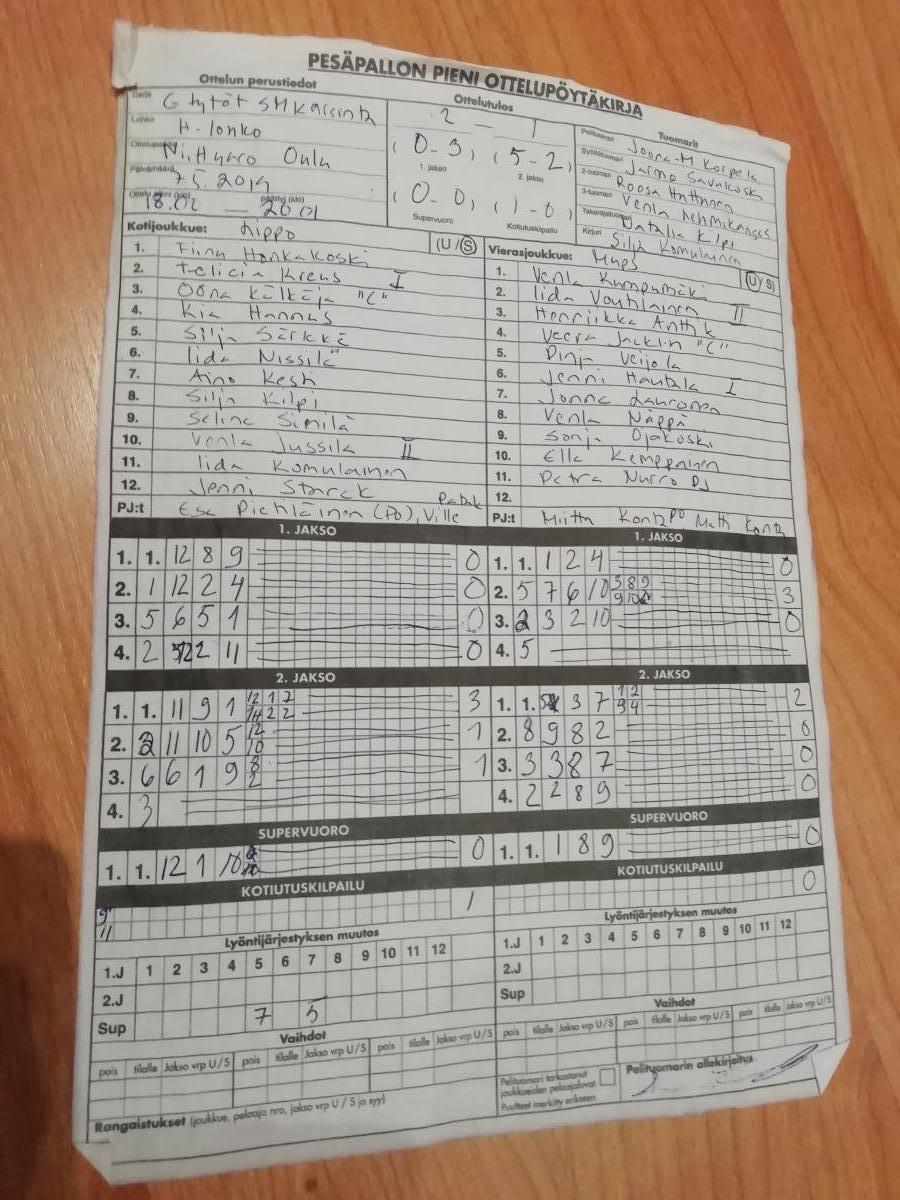 PESÄPALLON PIENI OTTELUPÖYTÄKIRJA
Ottelun perustiedot
Ottelutulos
Tuomarit
Sarja G tytöt SM karsinta
Lohko H-lohko
Ottelupaikka Oulu
Päivämäärä 7.5.2019
Ottelu alkoi (klo) 18.02 — päättyi (klo) 20.01
2 - 1
(0-3) (5-2)
1. jakso 2. jakso
(0-0) (1-0)
Supervuoro Kotiutuskilpailu
Pelituomari Joona-M Korpela
Syöttötuomari Jarmo Savukoski
2-tuomari Roosa Huttunen
3-tuomari Venla Lehmikangas
Takarajatuomari Natalia Kilpi
Kirjuri Silja Komulainen
Kotijoukkue: Lippo (U/S)
1. Finna Honkakoski
2. Felicia Kreus I
3. Oona Kälkäjä "C"
4. Kia Hannus
5. Silja Särkkä
6. Iida Nissilä
7. Aino Kesti
8. Silja Kilpi
9. Selina Similä
10. Venla Jussila II
11. Iida Komulainen
12. Jenni Starck
PJ:t Esa Piehläinen (PJ), Ville
Vierasjoukkue: Mups (U/S)
1. Venla Kumpumäki
2. Iida Voutilainen II
3. Henriikka Anttik
4. Veera Jacklin "C"
5. Pinja Veijola
6. Jenni Hautala I
7. Jonna Lauronen
8. Venla Näppä
9. Sonja Ojakoski
10. Ella Kemppainen
11. Petra Nurro PJ
12.
PJ:t Miitta Kontz PJ Matti Kontz
1. JAKSO
1. 1. 12 8 9 0
2. 1 12 2 4 0
3. 5 6 5 1 0
4. 2 2 11 0
1. JAKSO
1. 1. 1 2 4 0
2. 5 7 6 10 3 8 9 3
3. 2 3 2 10 0
4. 5
2. JAKSO
1. 1. 11 9 1 12 1 2 3
2. 2 11 10 5 12 10 1
3. 6 6 1 9 8 2 1
4. 3
2. JAKSO
1. 1. 3 7 1 2 3 4 2
2. 8 9 8 2 0
3. 3 3 8 7 0
4. 2 2 8 9 0
SUPERVUORO
1. 1. 12 1 10 0
SUPERVUORO
1. 1. 1 8 9 0
KOTIUTUSKILPAILU
9 11 1
KOTIUTUSKILPAILU
0
Lyöntijärjestyksen muutos
1.J 1 2 3 4 5 6 7 8 9 10 11 12
2.J
Sup 7 5
Lyöntijärjestyksen muutos
1.J 1 2 3 4 5 6 7 8 9 10 11 12
2.J
Sup
Vaihdot
pois tilalle Jakso vrp U/S pois tilalle Jakso vrp U/S pois tilalle Jakso vrp U/S
Vaihdot
pois tilalle Jakso vrp U/S pois tilalle Jakso vrp U/S pois tilalle Jakso vrp U/S
Pelituomari tarkastanut
joukkueiden pelaajaluvat
Puutteet merkitty erikseen
Pelituomarin allekirjoitus
Rangaistukset (joukkue, pelaaja nro, jakso vrp U / S ja syy)